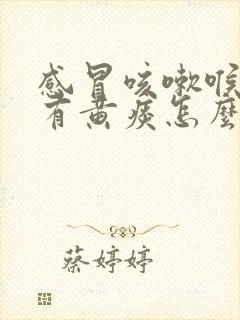 感冒咳嗽喉
有黄痰怎麽
蔡婷婷